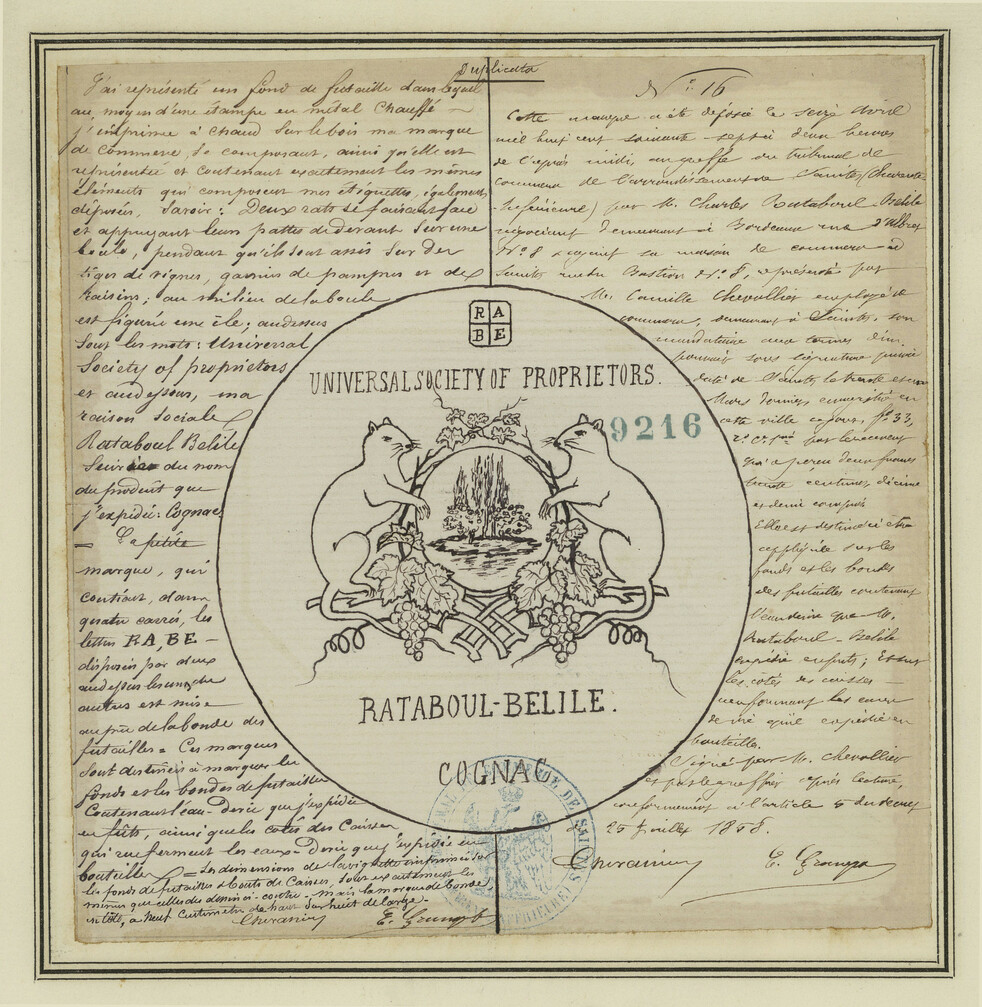 Duplicata
J'ai représenté un fond de futaille dans lequel
au moyen d'une étampe en métal chauffé
j'imprime à chaud sur le bois ma marque
de commerce, se composant, ainsi qu'elle est
représentée et contenant exactement les mêmes
éléments qui composent mes étiquettes, également
déposées, savoir: Deux rats se faisant face
et appuyant leurs pattes de devant sur une
boule, pendant qu'ils sont assis sur des
tiges de vignes, garnies de pampres et de
raisins; au milieu de la boule
est figurée une île; au dessus
sont les mots: Universal
Society of proprietors
et au dessous, ma
raison sociale
Rataboul Belile
Suivie du nom
du produit que
j'expédie: Cognac
= La petite
marque, qui
contient, dans
quatre carrés, les
lettres RA, BE -
disposées par deux
au dessus les unes des
autres est mise
au près de la bonde des
futailles = Ces marques
sont destinées à marquer les
fonds et les bondes de futailles
contenant l'eau-de-vie que j'expédie
en fûts, ainsi que les côtés des Caisses
qui renferment les eaux-de-vie que j'expédie en
bouteilles = Les dimensions de la vignette imprimée sur
les fonds de futailles & bouts de Caisses, sont exactement les
mêmes que celles du dessin ci-contre - mais la marque de bonde
à neuf centimètres de haut sur huit de large.
N° 16
Cette marque a été déposée le seize Avril
mil huit cent soixante sept à deux heures
de l'après midi, au greffe du tribunal de
commerce de l'arrondissement de Saintes (Charente
Inférieure) par M. Charles Rataboul Belile
négociant demeurant à Bordeaux rue d'Albret
N° 8 ayant sa maison de commerce à
Saintes rue du Bastion N° 8, représenté par
M. Camille Chevallier employé de
commerce, demeurant à Saintes, son
mandataire aux termes d'un
pouvoir sous signature privée
daté de Saintes, le trente et un
Mars dernier, enregistré en
cette ville ce jour, f° 33,
r° par le receveur
qui a perçu deux francs
trente centimes, décime
et demi compris
Elle est destinée à être
appliquée sur les
fonds et les bondes
des futailles contenant
l'eau de vie que M.
Rataboul-Belile
expédie en futs; Et sur
les côtés des caisses
renfermant les eaux
de vie qu'il expédie en
bouteilles.
Signé par M. Chevallier
et par le greffier après lecture,
conformément à l'article 5 du décret
du 26 Juillet 1858.
RA
BE
UNIVERSAL SOCIETY OF PROPRIETORS.
9216
RATABOUL-BELILE.
COGNAC